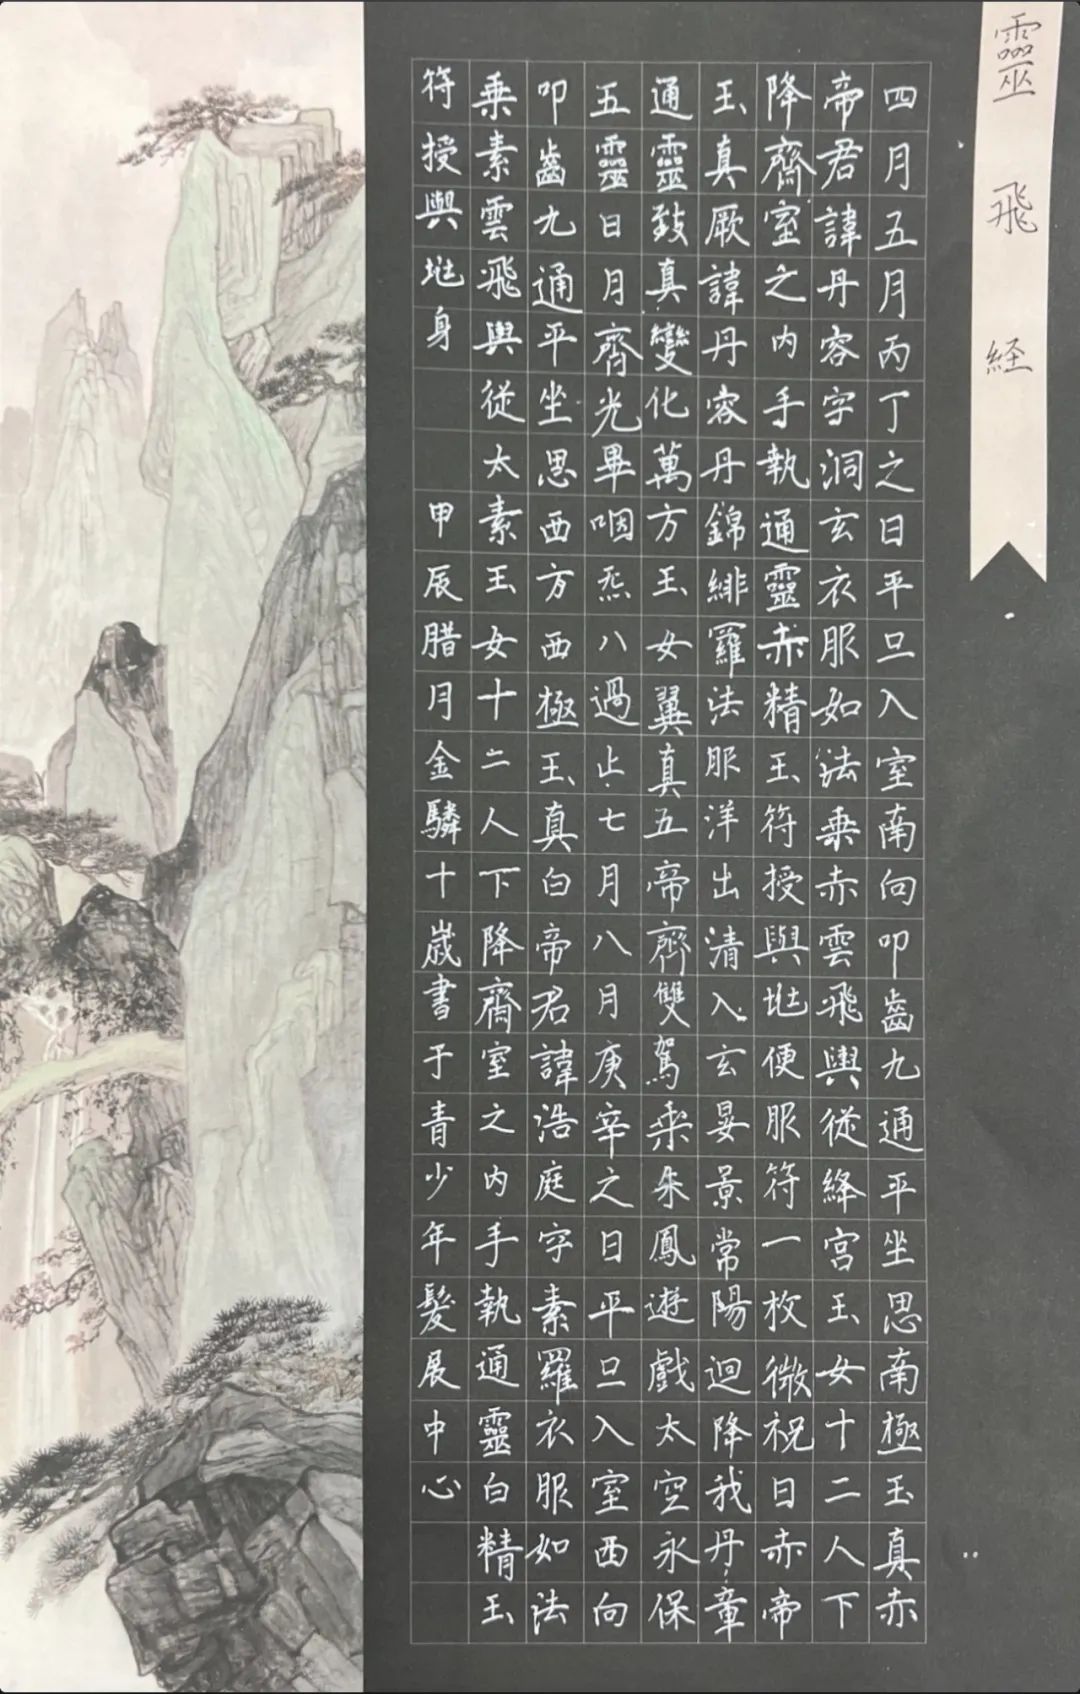 靈飛経
四月五月丙丁之日平旦入室南向叩齒九通平坐思南極玉真赤
帝君諱丹容字洞玄衣服如法乗赤雲飛輿從絳宮玉女十二人下
降齋室之内手執通靈赤精玉符授與兆便服符一枚微祝曰赤帝
玉真厥諱丹容丹錦緋羅法服洋出清入玄晏景常陽迴降我丹章
通靈致真變化萬方玉女翼真五帝齊雙駕乗朱鳳遊戲太空永保
五靈日月齊光畢咽炁八過止七月八月庚辛之日平旦入室西向
叩齒九通平坐思西方西極玉真白帝君諱浩庭字素羅衣服如法
乗素雲飛輿從太素玉女十二人下降齋室之内手執通靈白精玉
符授與兆身 甲辰腊月金驎十歲書于青少年髮展中心